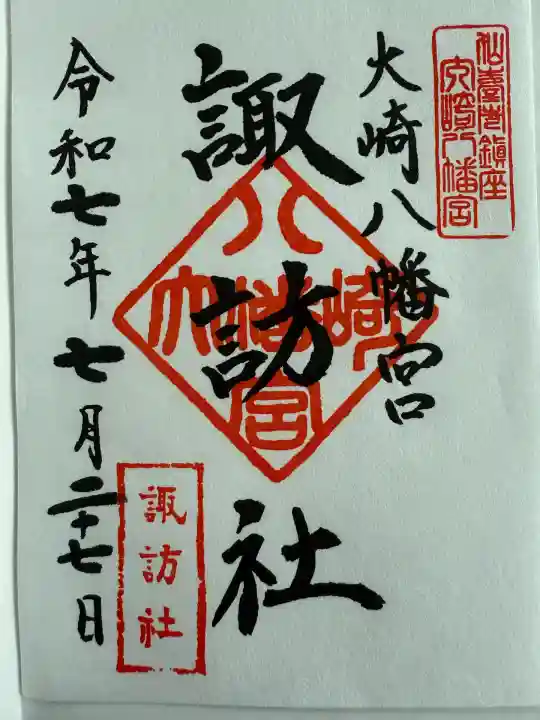 仙臺總鎮座
大崎八幡宮
大崎八幡宮
諏訪社
大崎八幡宮
諏訪社
令和七年七月二十七日